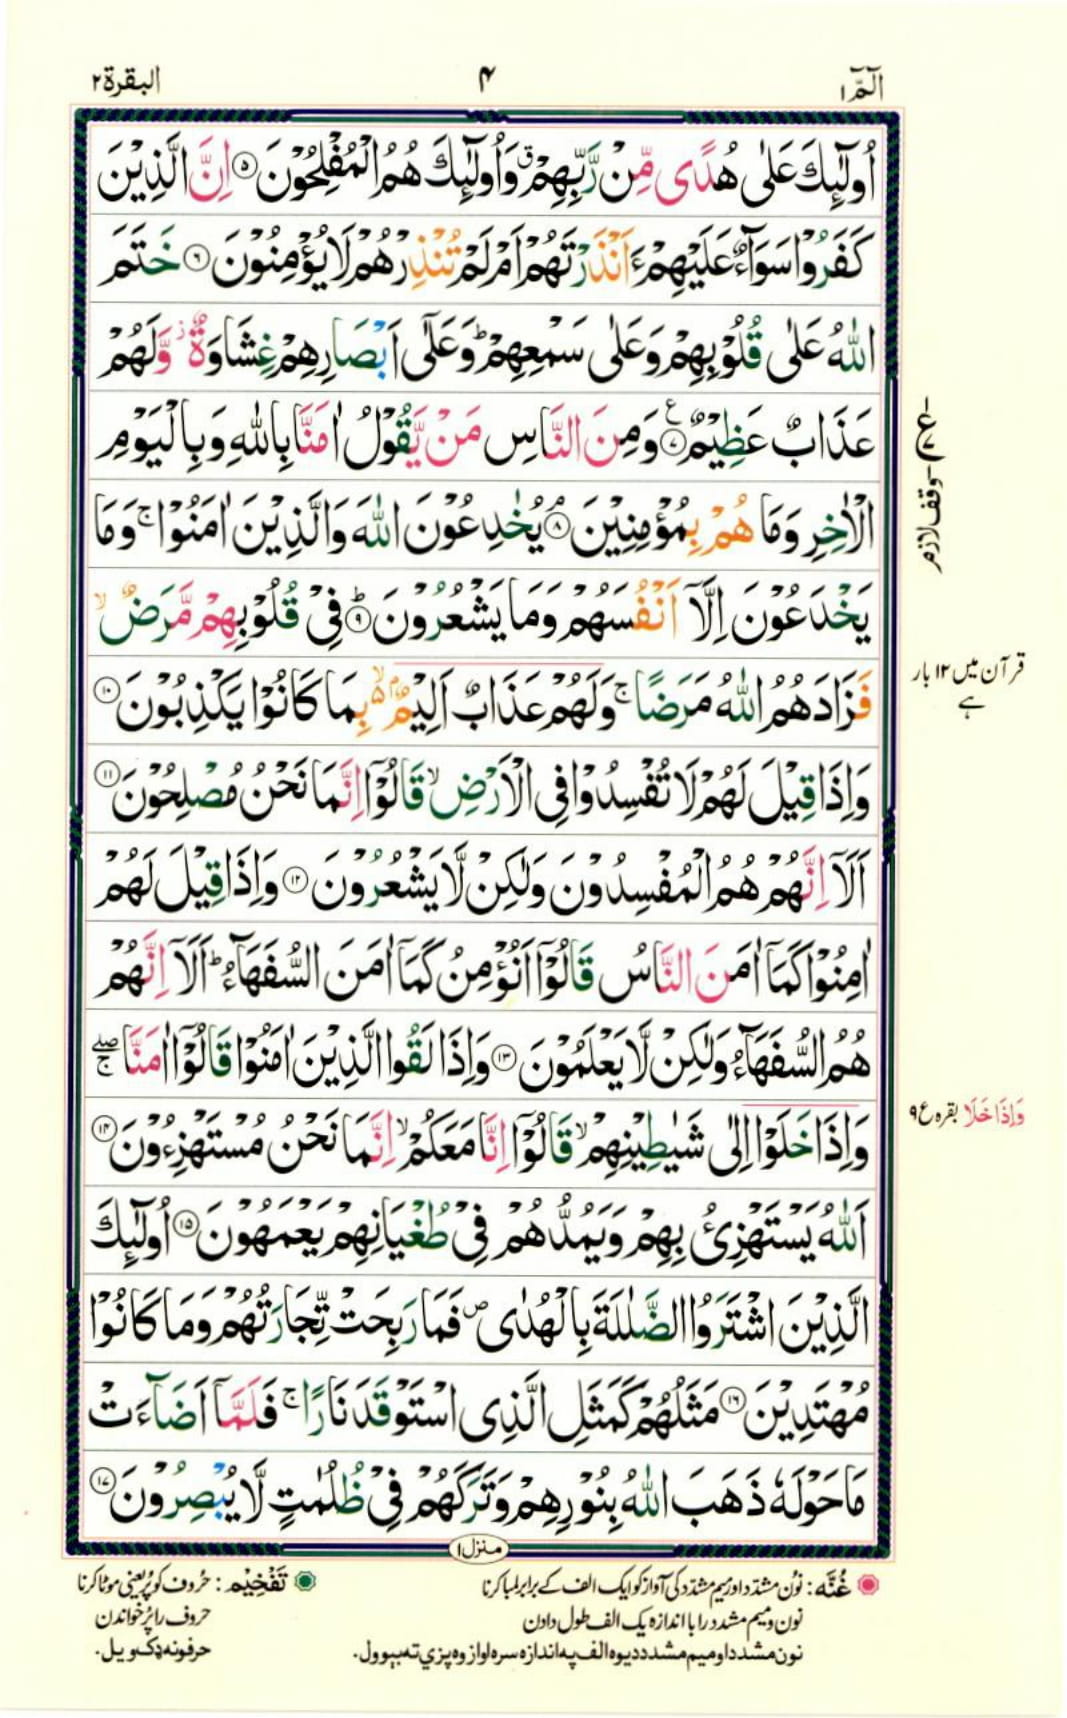 الٓمّٓ ۱
۴
البقرة ۲
اُولٰٓئِكَ عَلٰى هُدًى مِّنْ رَّبِّهِمْ ۗ وَاُولٰٓئِكَ هُمُ الْمُفْلِحُوْنَ ۵ اِنَّ الَّذِيْنَ
كَفَرُوْا سَوَآءٌ عَلَيْهِمْ ءَاَنْذَرْتَهُمْ اَمْ لَمْ تُنْذِرْهُمْ لَا يُؤْمِنُوْنَ ۶ خَتَمَ
اللّٰهُ عَلٰى قُلُوْبِهِمْ وَعَلٰى سَمْعِهِمْ ؕ وَعَلٰٓى اَبْصَارِهِمْ غِشَاوَةٌ ز وَّلَهُمْ
عَذَابٌ عَظِيْمٌ ۷ ع وَمِنَ النَّاسِ مَنْ يَّقُوْلُ اٰمَنَّا بِاللّٰهِ وَبِالْيَوْمِ
الْاٰخِرِ وَمَا هُمْ بِمُؤْمِنِيْنَ ۸ ۘ يُخٰدِعُوْنَ اللّٰهَ وَالَّذِيْنَ اٰمَنُوْا ۚ وَمَا
يَخْدَعُوْنَ اِلَّآ اَنْفُسَهُمْ وَمَا يَشْعُرُوْنَ ۹ ؕ فِيْ قُلُوْبِهِمْ مَّرَضٌ ۙ
فَزَادَهُمُ اللّٰهُ مَرَضًا ۚ وَلَهُمْ عَذَابٌ اَلِيْمٌۢ ۙ۵ بِمَا كَانُوْا يَكْذِبُوْنَ ۱۰
وَاِذَا قِيْلَ لَهُمْ لَا تُفْسِدُوْا فِى الْاَرْضِ ۙ قَالُوْٓا اِنَّمَا نَحْنُ مُصْلِحُوْنَ ۱۱
اَلَآ اِنَّهُمْ هُمُ الْمُفْسِدُوْنَ وَلٰكِنْ لَّا يَشْعُرُوْنَ ۱۲ وَاِذَا قِيْلَ لَهُمْ
اٰمِنُوْا كَمَآ اٰمَنَ النَّاسُ قَالُوْٓا اَنُؤْمِنُ كَمَآ اٰمَنَ السُّفَهَآءُ ؕ اَلَآ اِنَّهُمْ
هُمُ السُّفَهَآءُ وَلٰكِنْ لَّا يَعْلَمُوْنَ ۱۳ وَاِذَا لَقُوا الَّذِيْنَ اٰمَنُوْا قَالُوْٓا اٰمَنَّا ۖۚ
وَاِذَا خَلَوْا اِلٰى شَيٰطِيْنِهِمْ ۙ قَالُوْٓا اِنَّا مَعَكُمْ ۙ اِنَّمَا نَحْنُ مُسْتَهْزِءُوْنَ ۱۴
اَللّٰهُ يَسْتَهْزِئُ بِهِمْ وَيَمُدُّهُمْ فِيْ طُغْيَانِهِمْ يَعْمَهُوْنَ ۱۵ اُولٰٓئِكَ
الَّذِيْنَ اشْتَرَوُا الضَّلٰلَةَ بِالْهُدٰى ص فَمَا رَبِحَتْ تِّجَارَتُهُمْ وَمَا كَانُوْا
مُهْتَدِيْنَ ۱۶ مَثَلُهُمْ كَمَثَلِ الَّذِى اسْتَوْقَدَ نَارًا ۚ فَلَمَّآ اَضَآءَتْ
مَا حَوْلَهٗ ذَهَبَ اللّٰهُ بِنُوْرِهِمْ وَتَرَكَهُمْ فِيْ ظُلُمٰتٍ لَّا يُبْصِرُوْنَ ۱۷
وقف لازم
قرآن میں ۱۲ بار
ہے
وَاِذَا خَلَا بقرہ ع ۹
منزل ۱
غُنَّه : نوُن مشدّد اور میم مشدّد کی آواز کو ایک الف کے برابر لمبا کرنا
نون و میم مشدد را با اندازه یک الف طول دادن
نون مشدد او میم مشدد دیوه الف په اندازه سره اواز وه پزي ته بیوول.
تَفْخِيْم : حرُوف کو پُر یعنی موٹا کرنا
حروف را پُر خواندن
حرفونه ډک ویل.